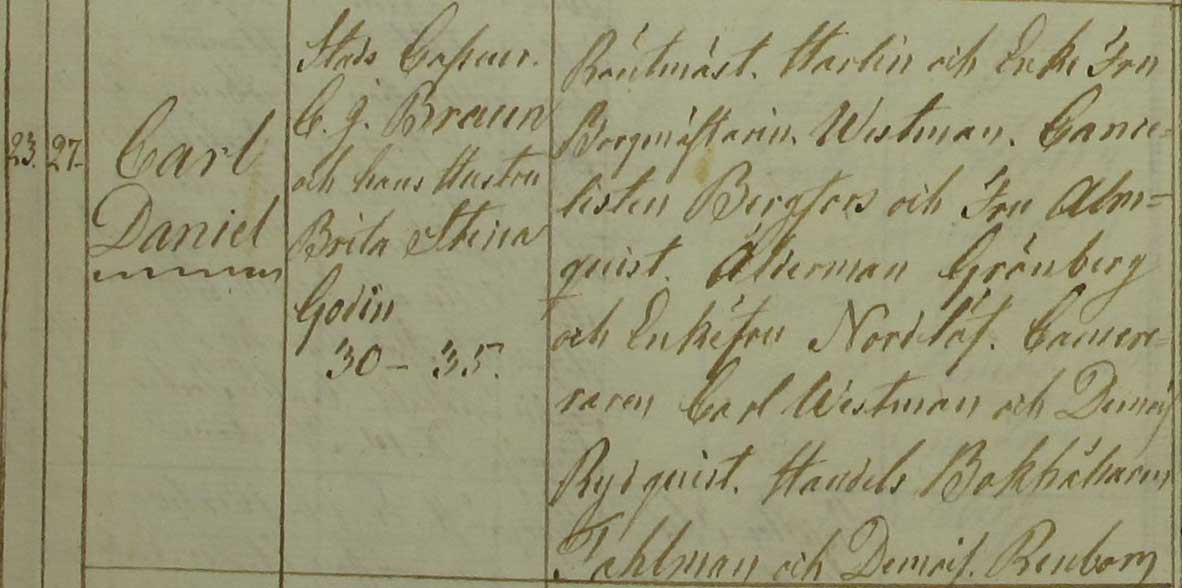 23. 27.
Carl
Daniel
Stads Casseur.
C. G. Braun
och hans Hustru
Brita Stina
Godin
30 - 35.
Räntmäst. Harlin och Enke Fru
Borgmästarin. Westman. Came-
listen Bergfors och Fru Alm=
quist. Ålderman Grönberg
och Enkefru Nordlöf. Camere=
raren Carl Westman och Demois
Rydquist. Handels Bokhållaren
Fahlman och Demois. Renborg